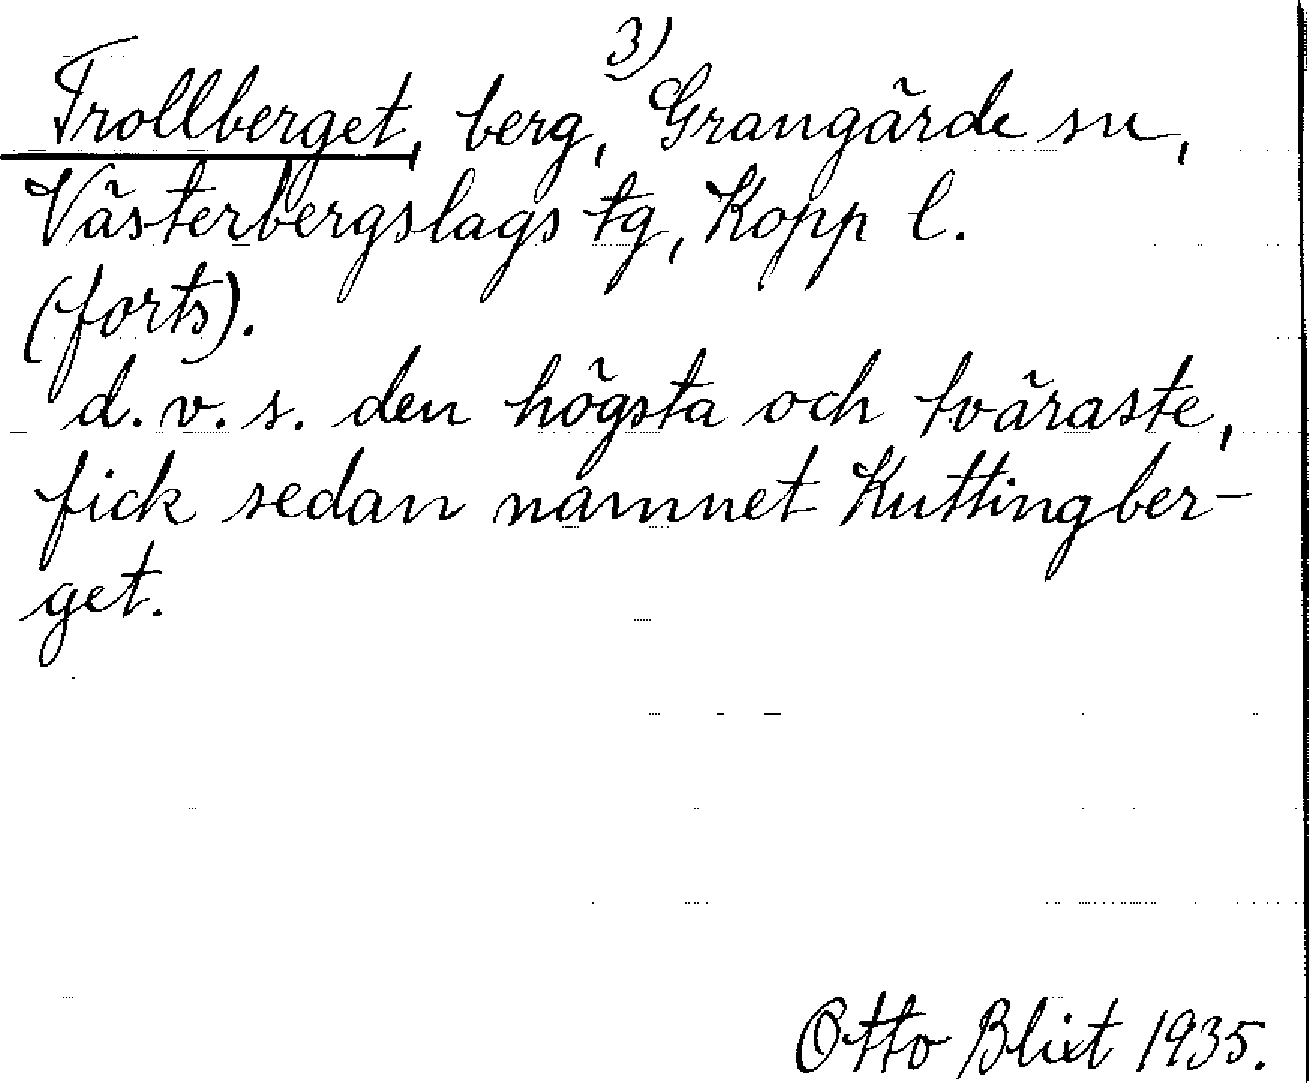 3)
Trollberget, berg, Grangärde sn,
Västerbergslags tg, Kopp l.
(forts).
d. v. s. den högsta och tväraste,
fick sedan namnet Kuttingber-
get.
Otto Blixt 1935.